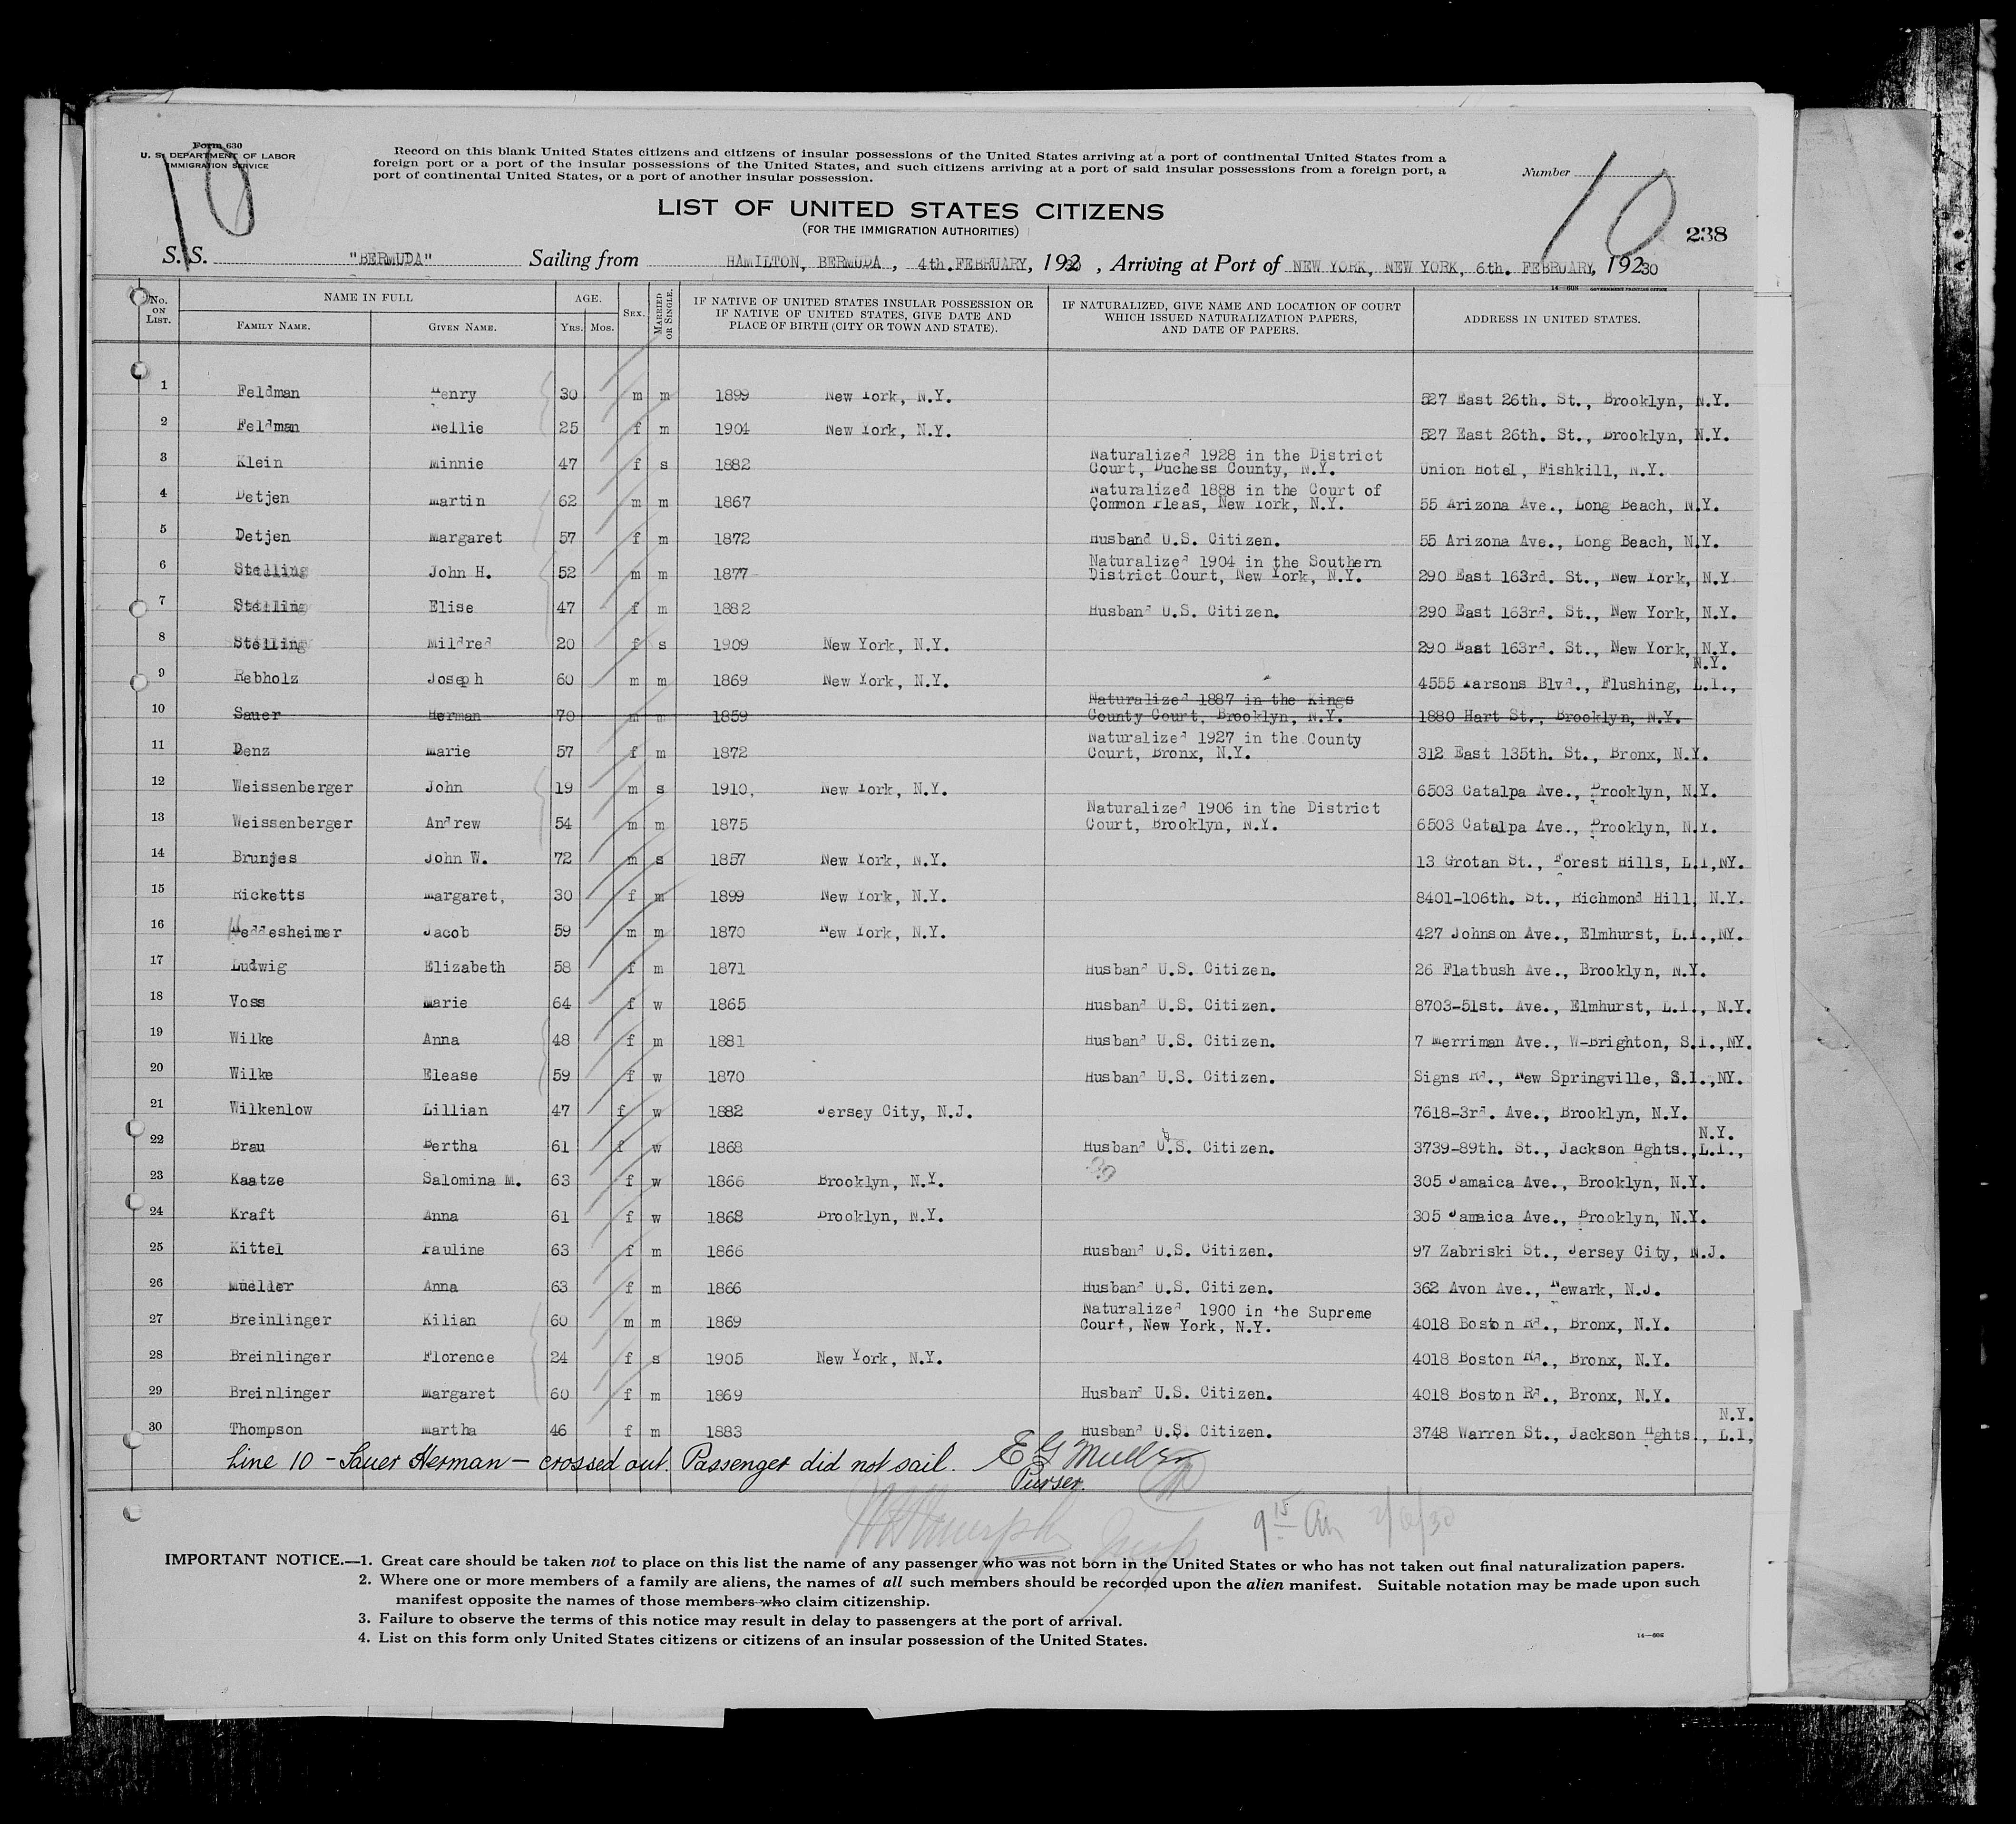 Form 630
U. S. DEPARTMENT OF LABOR
IMMIGRATION SERVICE
10
Record on this blank United States citizens and citizens of insular possessions of the United States arriving at a port of continental United States from a
foreign port or a port of the insular possessions of the United States, and such citizens arriving at a port of said insular possessions from a foreign port, a
port of continental United States, or a port of another insular possession.
Number 10
LIST OF UNITED STATES CITIZENS
(FOR THE IMMIGRATION AUTHORITIES)
238
S. S. "BERMUDA" Sailing from HAMILTON, BERMUDA, 4th. FEBRUARY, 1930, Arriving at Port of NEW YORK, NEW YORK, 6th. FEBRUARY, 19230
14—608 GOVERNMENT PRINTING OFFICE
No. ON LIST. NAME IN FULL FAMILY NAME. GIVEN NAME. AGE. YRS. MOS. SEX. MARRIED OR SINGLE. IF NATIVE OF UNITED STATES INSULAR POSSESSION OR IF NATIVE OF UNITED STATES, GIVE DATE AND PLACE OF BIRTH (CITY OR TOWN AND STATE). IF NATURALIZED, GIVE NAME AND LOCATION OF COURT WHICH ISSUED NATURALIZATION PAPERS, AND DATE OF PAPERS. ADDRESS IN UNITED STATES.
1 Feldman Henry 30 m m 1899 New York, N.Y. 527 East 26th. St., Brooklyn, N.Y.
2 Feldman Nellie 25 f m 1904 New York, N.Y. 527 East 26th. St., Brooklyn, N.Y.
3 Klein Minnie 47 f s 1882 Naturalized 1928 in the District Court, Duchess County, N.Y. Union Hotel, Fishkill, N.Y.
4 Detjen Martin 62 m m 1867 Naturalized 1888 in the Court of Common Pleas, New York, N.Y. 55 Arizona Ave., Long Beach, N.Y.
5 Detjen Margaret 57 f m 1872 Husband U.S. Citizen. 55 Arizona Ave., Long Beach, N.Y.
6 Stelling John H. 52 m m 1877 Naturalized 1904 in the Southern District Court, New York, N.Y. 290 East 163rd. St., New York, N.Y
7 Stelling Elise 47 f m 1882 Husband U.S. Citizen. 290 East 163rd. St., New York, N.Y.
8 Stelling Mildred 20 f s 1909 New York, N.Y. 290 East 163rd. St., New York, N.Y.
9 Rebholz Joseph 60 m m 1869 New York, N.Y. 4555 Parsons Blvd., Flushing, L.I., N.Y.
10 Sauer Herman 70 m m 1859 Naturalized 1887 in the Kings County Court, Brooklyn, N.Y. 1880 Hart St., Brooklyn, N.Y.
11 Denz Marie 57 f m 1872 Naturalized 1927 in the County Court, Bronx, N.Y. 312 East 135th. St., Bronx, N.Y.
12 Weissenberger John 19 m s 1910, New York, N.Y. 6503 Catalpa Ave., Brooklyn, N.Y.
13 Weissenberger Andrew 54 m m 1875 Naturalized 1906 in the District Court, Brooklyn, N.Y. 6503 Catalpa Ave., Brooklyn, N.Y.
14 Brunjes John W. 72 m s 1857 New York, N.Y. 13 Grotan St., Forest Hills, L.I,NY.
15 Ricketts Margaret, 30 f m 1899 New York, N.Y. 8401-106th. St., Richmond Hill, N.Y.
16 Heddesheimer Jacob 59 m m 1870 New York, N.Y. 427 Johnson Ave., Elmhurst, L.I.,NY.
17 Ludwig Elizabeth 58 f m 1871 Husband U.S. Citizen. 26 Flatbush Ave., Brooklyn, N.Y.
18 Voss Marie 64 f w 1865 Husband U.S. Citizen. 8703-51st. Ave., Elmhurst, L.I., N.Y.
19 Wilke Anna 48 f m 1881 Husband U.S. Citizen. 7 Merriman Ave., W-Brighton, S.I.,NY.
20 Wilke Elease 59 f w 1870 Husband U.S. Citizen. Signs Rd., New Springville, S.I.,NY.
21 Wilkenlow Lillian 47 f w 1882 Jersey City, N.J. 7618-3rd. Ave., Brooklyn, N.Y.
22 Brau Bertha 61 f w 1868 Husband U.S. Citizen. 3739-89th. St., Jackson Hghts., L.I., N.Y.
23 Kaatze Salomina M. 63 f w 1866 Brooklyn, N.Y. 305 Jamaica Ave., Brooklyn, N.Y.
24 Kraft Anna 61 f w 1868 Brooklyn, N.Y. 305 Jamaica Ave., Brooklyn, N.Y.
25 Kittel Pauline 63 f m 1866 Husband U.S. Citizen. 97 Zabriski St., Jersey City, N.J.
26 Mueller Anna 63 f m 1866 Husband U.S. Citizen. 362 Avon Ave., Newark, N.J.
27 Breinlinger Kilian 60 m m 1869 Naturalized 1900 in the Supreme Court, New York, N.Y. 4018 Boston Rd., Bronx, N.Y.
28 Breinlinger Florence 24 f s 1905 New York, N.Y. 4018 Boston Rd., Bronx, N.Y.
29 Breinlinger Margaret 60 f m 1869 Husband U.S. Citizen. 4018 Boston Rd., Bronx, N.Y.
30 Thompson Martha 46 f m 1883 Husband U.S. Citizen. 3748 Warren St., Jackson Hghts., L.I, N.Y.
Line 10 - Sauer Herman - crossed out. Passenger did not sail. E G Muller
Purser.
9 15 Am 2/6/30
IMPORTANT NOTICE.—1. Great care should be taken not to place on this list the name of any passenger who was not born in the United States or who has not taken out final naturalization papers.
2. Where one or more members of a family are aliens, the names of all such members should be recorded upon the alien manifest. Suitable notation may be made upon such
manifest opposite the names of those members who claim citizenship.
3. Failure to observe the terms of this notice may result in delay to passengers at the port of arrival.
4. List on this form only United States citizens or citizens of an insular possession of the United States.
14—608